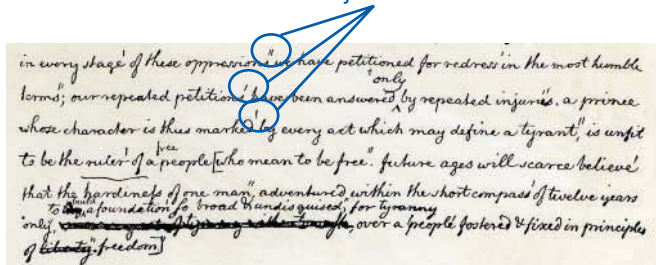 in every stage' of these oppressions" we have petitioned for redress' in the most humble
only
terms"; our repeated petitions' have been answered by repeated injuries. a prince
whose character is thus marked' by every act which may define a tyrant", is unfit
free
to be the ruler' of a people [who mean to be free". future ages will scarce believe'
that the hardiness of one man", adventured' within the short compass' of twelve years
to build a foundation' so broad & undisguised, for tyranny
only, over a people' fostered & fixed in principles
of liberty". freedom]